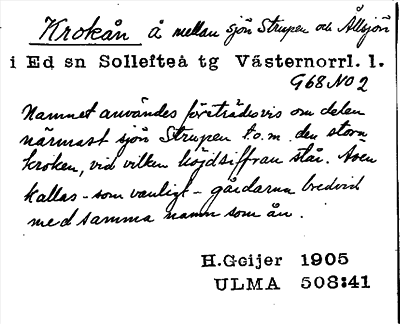 Krokån å mellan sjön Strupen och Ållsjön
i Ed sn Sollefteå tg Västernorrl. l.
G68 NO 2
Namnet användes företrädesvis om delen
närmast sjön Strupen t.o.m. den stora
kroken, vid vilken höjdsiffran står. Även
kallas - som vanligt - gårdarna bredvid
med samma namn som ån.
H.Geijer 1905
ULMA 508:41